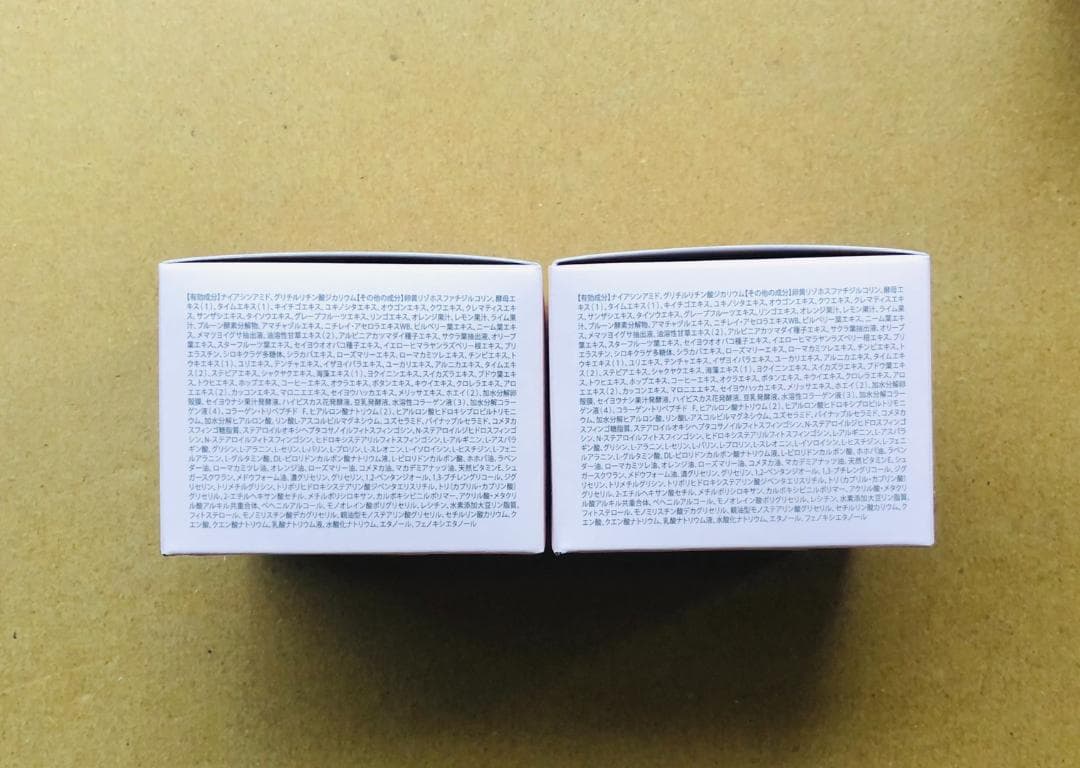 【有効成分】ナイアシンアミド、グリチルリチン酸ジカリウム【その他の成分】卵黄リゾホスファチジルコリン、酵母エ
キス(1)、タイムエキス(1)、キイチゴエキス、ユキノシタエキス、オウゴンエキス、クワエキス、クレマティスエキ
ス、サンザシエキス、タイソウエキス、グレープフルーツエキス、リンゴエキス、オレンジ果汁、レモン果汁、ライム果
汁、プルーン酵素分解物、アマチャヅルエキス、ニチレイ・アセロラエキスWB、ビルベリー葉エキス、ニーム葉エキ
ス、メマツヨイグサ抽出液、油溶性甘草エキス(2)、アルピニアカツマダイ種子エキス、サクラ葉抽出液、オリーブ
葉エキス、スターフルーツ葉エキス、セイヨウオオバコ種子エキス、イエローヒマラヤンラズベリー根エキス、プリ
エラスチン、シロキクラゲ多糖体、シラカバエキス、ローズマリーエキス、ローマカミツレエキス、チンピエキス、ト
ウキエキス(1)、ユリエキス、テンチャエキス、イザヨイバラエキス、ユーカリエキス、アルニカエキス、タイムエキ
ス(2)、ステビアエキス、シャクヤクエキス、海藻エキス(1)、ヨクイニンエキス、スイカズラエキス、ブドウ葉エキ
ス、トウヒエキス、ホップエキス、コーヒーエキス、オクラエキス、ボタンエキス、キウイエキス、クロレラエキス、アロ
エエキス(2)、カッコンエキス、マロニエエキス、セイヨウハッカエキス、メリッサエキス、ホエイ(2)、加水分解卵
殻膜、セイヨウナシ果汁発酵液、ハイビスカス花発酵液、豆乳発酵液、水溶性コラーゲン液(3)、加水分解コラー
ゲン液(4)、コラーゲン・トリペプチド F、ヒアルロン酸ナトリウム(2)、ヒアルロン酸ヒドロキシプロピルトリモニ
ウム、加水分解ヒアルロン酸、リン酸L-アスコルビルマグネシウム、ユズセラミド、パイナップルセラミド、コメヌカ
スフィンゴ糖脂質、ステアロイルオキシヘプタコサノイルフィトスフィンゴシン、N-ステアロイルジヒドロスフィンゴ
シン、N-ステアロイルフィトスフィンゴシン、ヒドロキシステアリルフィトスフィンゴシン、L-アルギニン、L-アスパラ
ギン酸、グリシン、L-アラニン、L-セリン、L-バリン、L-プロリン、L-スレオニン、L-イソロイシン、L-ヒスチジン、L-フェ
ニルアラニン、L-グルタミン酸、DL-ピロリドンカルボン酸ナトリウム液、L-ピロリドンカルボン酸、ホホバ油、ラベン
ダー油、ローマカミツレ油、オレンジ油、ローズマリー油、コメヌカ油、マカデミアナッツ油、天然ビタミンE、シュ
ガースクワラン、メドウフォーム油、濃グリセリン、グリセリン、1,2-ペンタンジオール、1,3-ブチレングリコール、ジグ
リセリン、トリメチルグリシン、トリポリヒドロキシステアリン酸ジペンタエリスリチル、トリ(カプリル・カプリン酸)
グリセリル、2-エチルヘキサン酸セチル、メチルポリシロキサン、カルボキシビニルポリマー、アクリル酸・メタクリ
ル酸アルキル共重合体、ベヘニルアルコール、モノオレイン酸ポリグリセリル、レシチン、水素添加大豆リン脂質、
フィトステロール、モノミリスチン酸デカグリセリル、親油型モノステアリン酸グリセリル、セチルリン酸カリウム、ク
エン酸、クエン酸ナトリウム、乳酸ナトリウム液、水酸化ナトリウム、エタノール、フェノキシエタノール
【有効成分】ナイアシンアミド、グリチルリチン酸ジカリウム【その他の成分】卵黄リゾホスファチジルコリン、酵母エ
キス(1)、タイムエキス(1)、キイチゴエキス、ユキノシタエキス、オウゴンエキス、クワエキス、クレマティスエキ
ス、サンザシエキス、タイソウエキス、グレープフルーツエキス、リンゴエキス、オレンジ果汁、レモン果汁、ライム果
汁、プルーン酵素分解物、アマチャヅルエキス、ニチレイ・アセロラエキスWB、ビルベリー葉エキス、ニーム葉エキ
ス、メマツヨイグサ抽出液、油溶性甘草エキス(2)、アルピニアカツマダイ種子エキス、サクラ葉抽出液、オリーブ
葉エキス、スターフルーツ葉エキス、セイヨウオオバコ種子エキス、イエローヒマラヤンラズベリー根エキス、プリ
エラスチン、シロキクラゲ多糖体、シラカバエキス、ローズマリーエキス、ローマカミツレエキス、チンピエキス、ト
ウキエキス(1)、ユリエキス、テンチャエキス、イザヨイバラエキス、ユーカリエキス、アルニカエキス、タイムエキ
ス(2)、ステビアエキス、シャクヤクエキス、海藻エキス(1)、ヨクイニンエキス、スイカズラエキス、ブドウ葉エキ
ス、トウヒエキス、ホップエキス、コーヒーエキス、オクラエキス、ボタンエキス、キウイエキス、クロレラエキス、アロ
エエキス(2)、カッコンエキス、マロニエエキス、セイヨウハッカエキス、メリッサエキス、ホエイ(2)、加水分解卵
殻膜、セイヨウナシ果汁発酵液、ハイビスカス花発酵液、豆乳発酵液、水溶性コラーゲン液(3)、加水分解コラー
ゲン液(4)、コラーゲン・トリペプチド F、ヒアルロン酸ナトリウム(2)、ヒアルロン酸ヒドロキシプロピルトリモニ
ウム、加水分解ヒアルロン酸、リン酸L-アスコルビルマグネシウム、ユズセラミド、パイナップルセラミド、コメヌカ
スフィンゴ糖脂質、ステアロイルオキシヘプタコサノイルフィトスフィンゴシン、N-ステアロイルジヒドロスフィンゴ
シン、N-ステアロイルフィトスフィンゴシン、ヒドロキシステアリルフィトスフィンゴシン、L-アルギニン、L-アスパラ
ギン酸、グリシン、L-アラニン、L-セリン、L-バリン、L-プロリン、L-スレオニン、L-イソロイシン、L-ヒスチジン、L-フェ
ニルアラニン、L-グルタミン酸、DL-ピロリドンカルボン酸ナトリウム液、L-ピロリドンカルボン酸、ホホバ油、ラベン
ダー油、ローマカミツレ油、オレンジ油、ローズマリー油、コメヌカ油、マカデミアナッツ油、天然ビタミンE、シュ
ガースクワラン、メドウフォーム油、濃グリセリン、グリセリン、1,2-ペンタンジオール、1,3-ブチレングリコール、ジグ
リセリン、トリメチルグリシン、トリポリヒドロキシステアリン酸ジペンタエリスリチル、トリ(カプリル・カプリン酸)
グリセリル、2-エチルヘキサン酸セチル、メチルポリシロキサン、カルボキシビニルポリマー、アクリル酸・メタクリ
ル酸アルキル共重合体、ベヘニルアルコール、モノオレイン酸ポリグリセリル、レシチン、水素添加大豆リン脂質、
フィトステロール、モノミリスチン酸デカグリセリル、親油型モノステアリン酸グリセリル、セチルリン酸カリウム、ク
エン酸、クエン酸ナトリウム、乳酸ナトリウム液、水酸化ナトリウム、エタノール、フェノキシエタノール